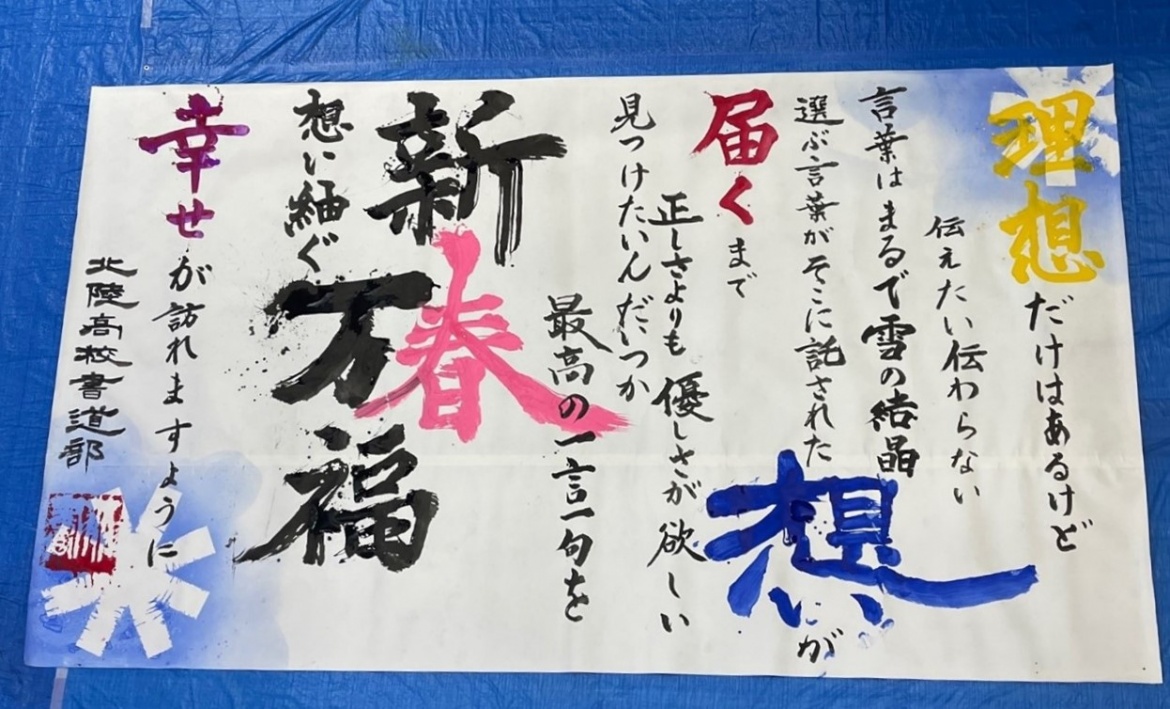 理想だけはあるけど
伝えたい伝わらない
言葉はまるで雪の結晶
選ぶ言葉がそこに託された
想いが
届くまで
正しさよりも優しさが欲しい
見つけたいんだいつか
最高の一言一句を
新春万福
想い紬ぐ
幸せが訪れますように
北陵高校書道部